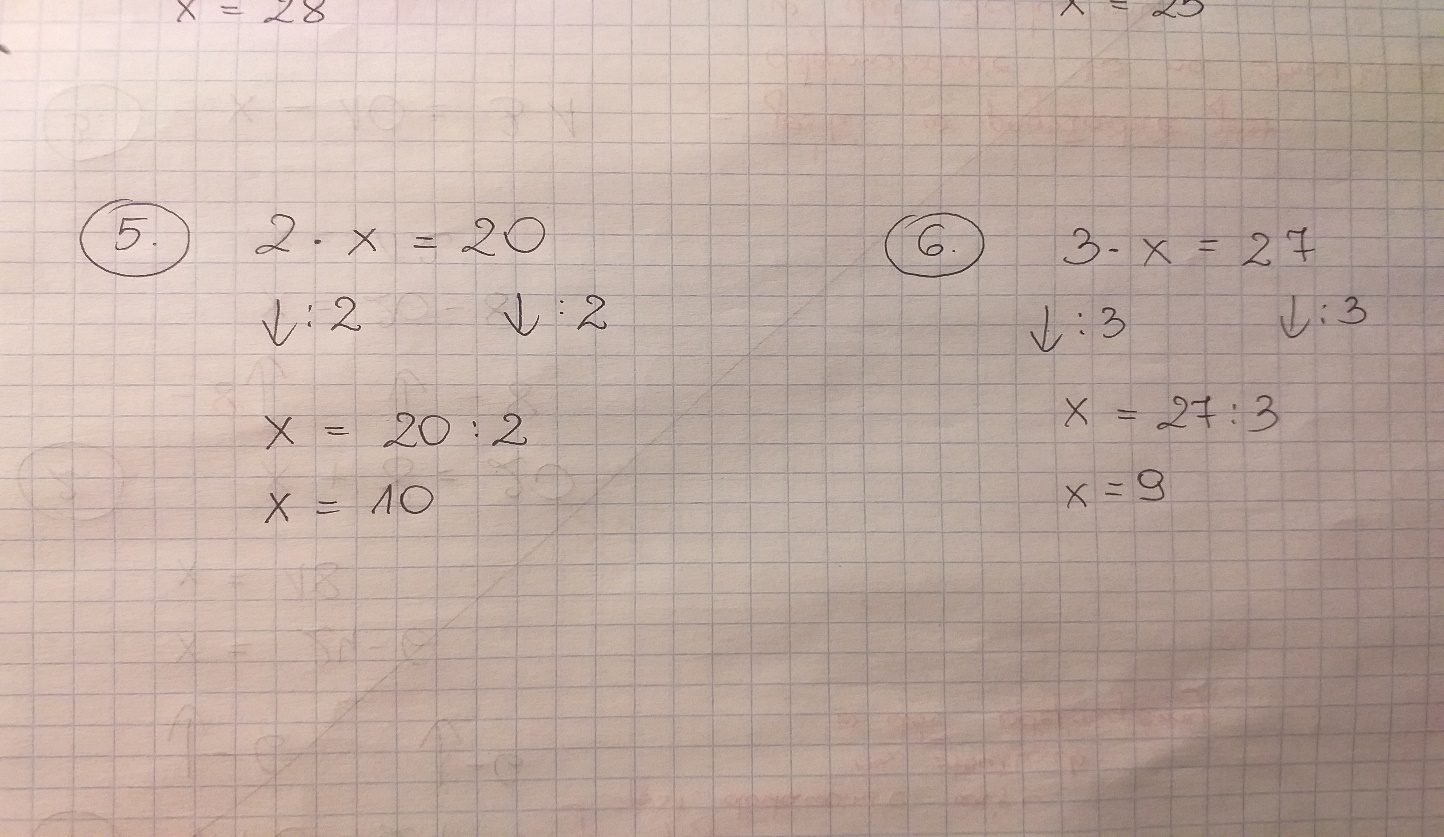 x = 28
x = 25
5. 2 · x = 20
↓ : 2 ↓ : 2
x = 20 : 2
x = 10
6. 3 · x = 27
↓ : 3 ↓ : 3
x = 27 : 3
x = 9